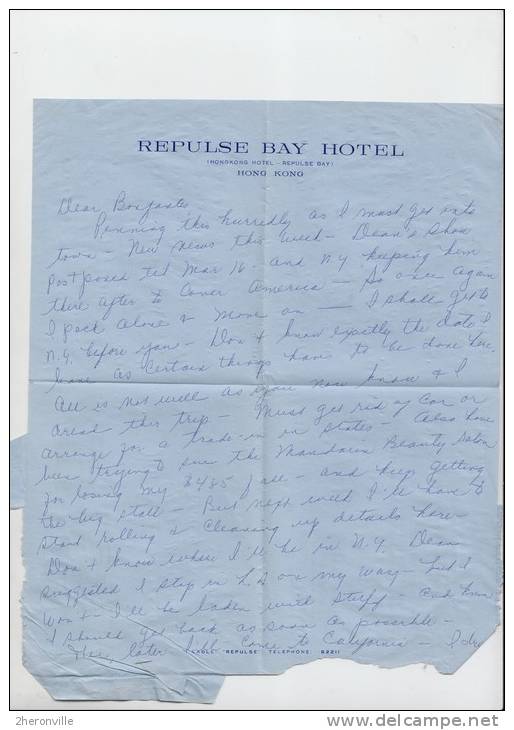 REPULSE BAY HOTEL
(HONGKONG HOTEL - REPULSE BAY)
HONG KONG
Dear
Penning this hurredly as I must get into
town - New News this week - Dean's Show
Postposed til Mar 16 - and N.Y keeping him
there after to Cover America - So once again
I pack alone & Move on - I shall get to
N.Y. before you - Don't know exactly the date I
leave as certain things have to be done here.
All is not well as you now know & I
this trip - Must get rid of Car or
arrange for a trade-in in States - Also have
been trying to sue the Mandarin Beauty Salon
for losing my $485 fall - and keep getting
the big stall - But next week I'll have to
start rolling & Cleaning up details here -
Don't know where I'll be in N.Y. Dean
suggested I stop in on my way - but I
Won't - I'll be laden with stuff - and know
I should get back as soon as possible -
later I'll Come to California -
CABLE "REPULSE" TELEPHONE 82211
2heronville
http://www.delcampe.net